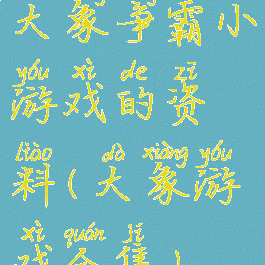 大象争霸小
yóu xì de zī
游戏的资
liào dà xiàng yóu
料(大象游
xì quán jí
戏全集)